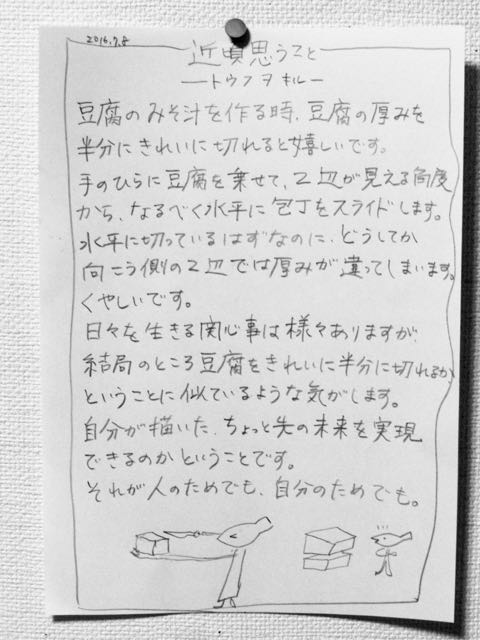 2016.7.8
近頃思うこと
―トウフヲキル―
豆腐のみそ汁を作る時、豆腐の厚みを
半分にきれいに切れると嬉しいです。
手のひらに豆腐を乗せて、2辺が見える角度
から、なるべく水平に包丁をスライドします。
水平に切っているはずなのに、どうしてか
向こう側の2辺では厚みが違ってしまいます。
くやしいです。
日々を生きる関心事は様々ありますが、
結局のところ豆腐をきれいに半分に切れるか
ということに似ているような気がします。
自分が描いた、ちょっと先の未来を実現
できるのかということです。
それが人のためでも、自分のためでも。